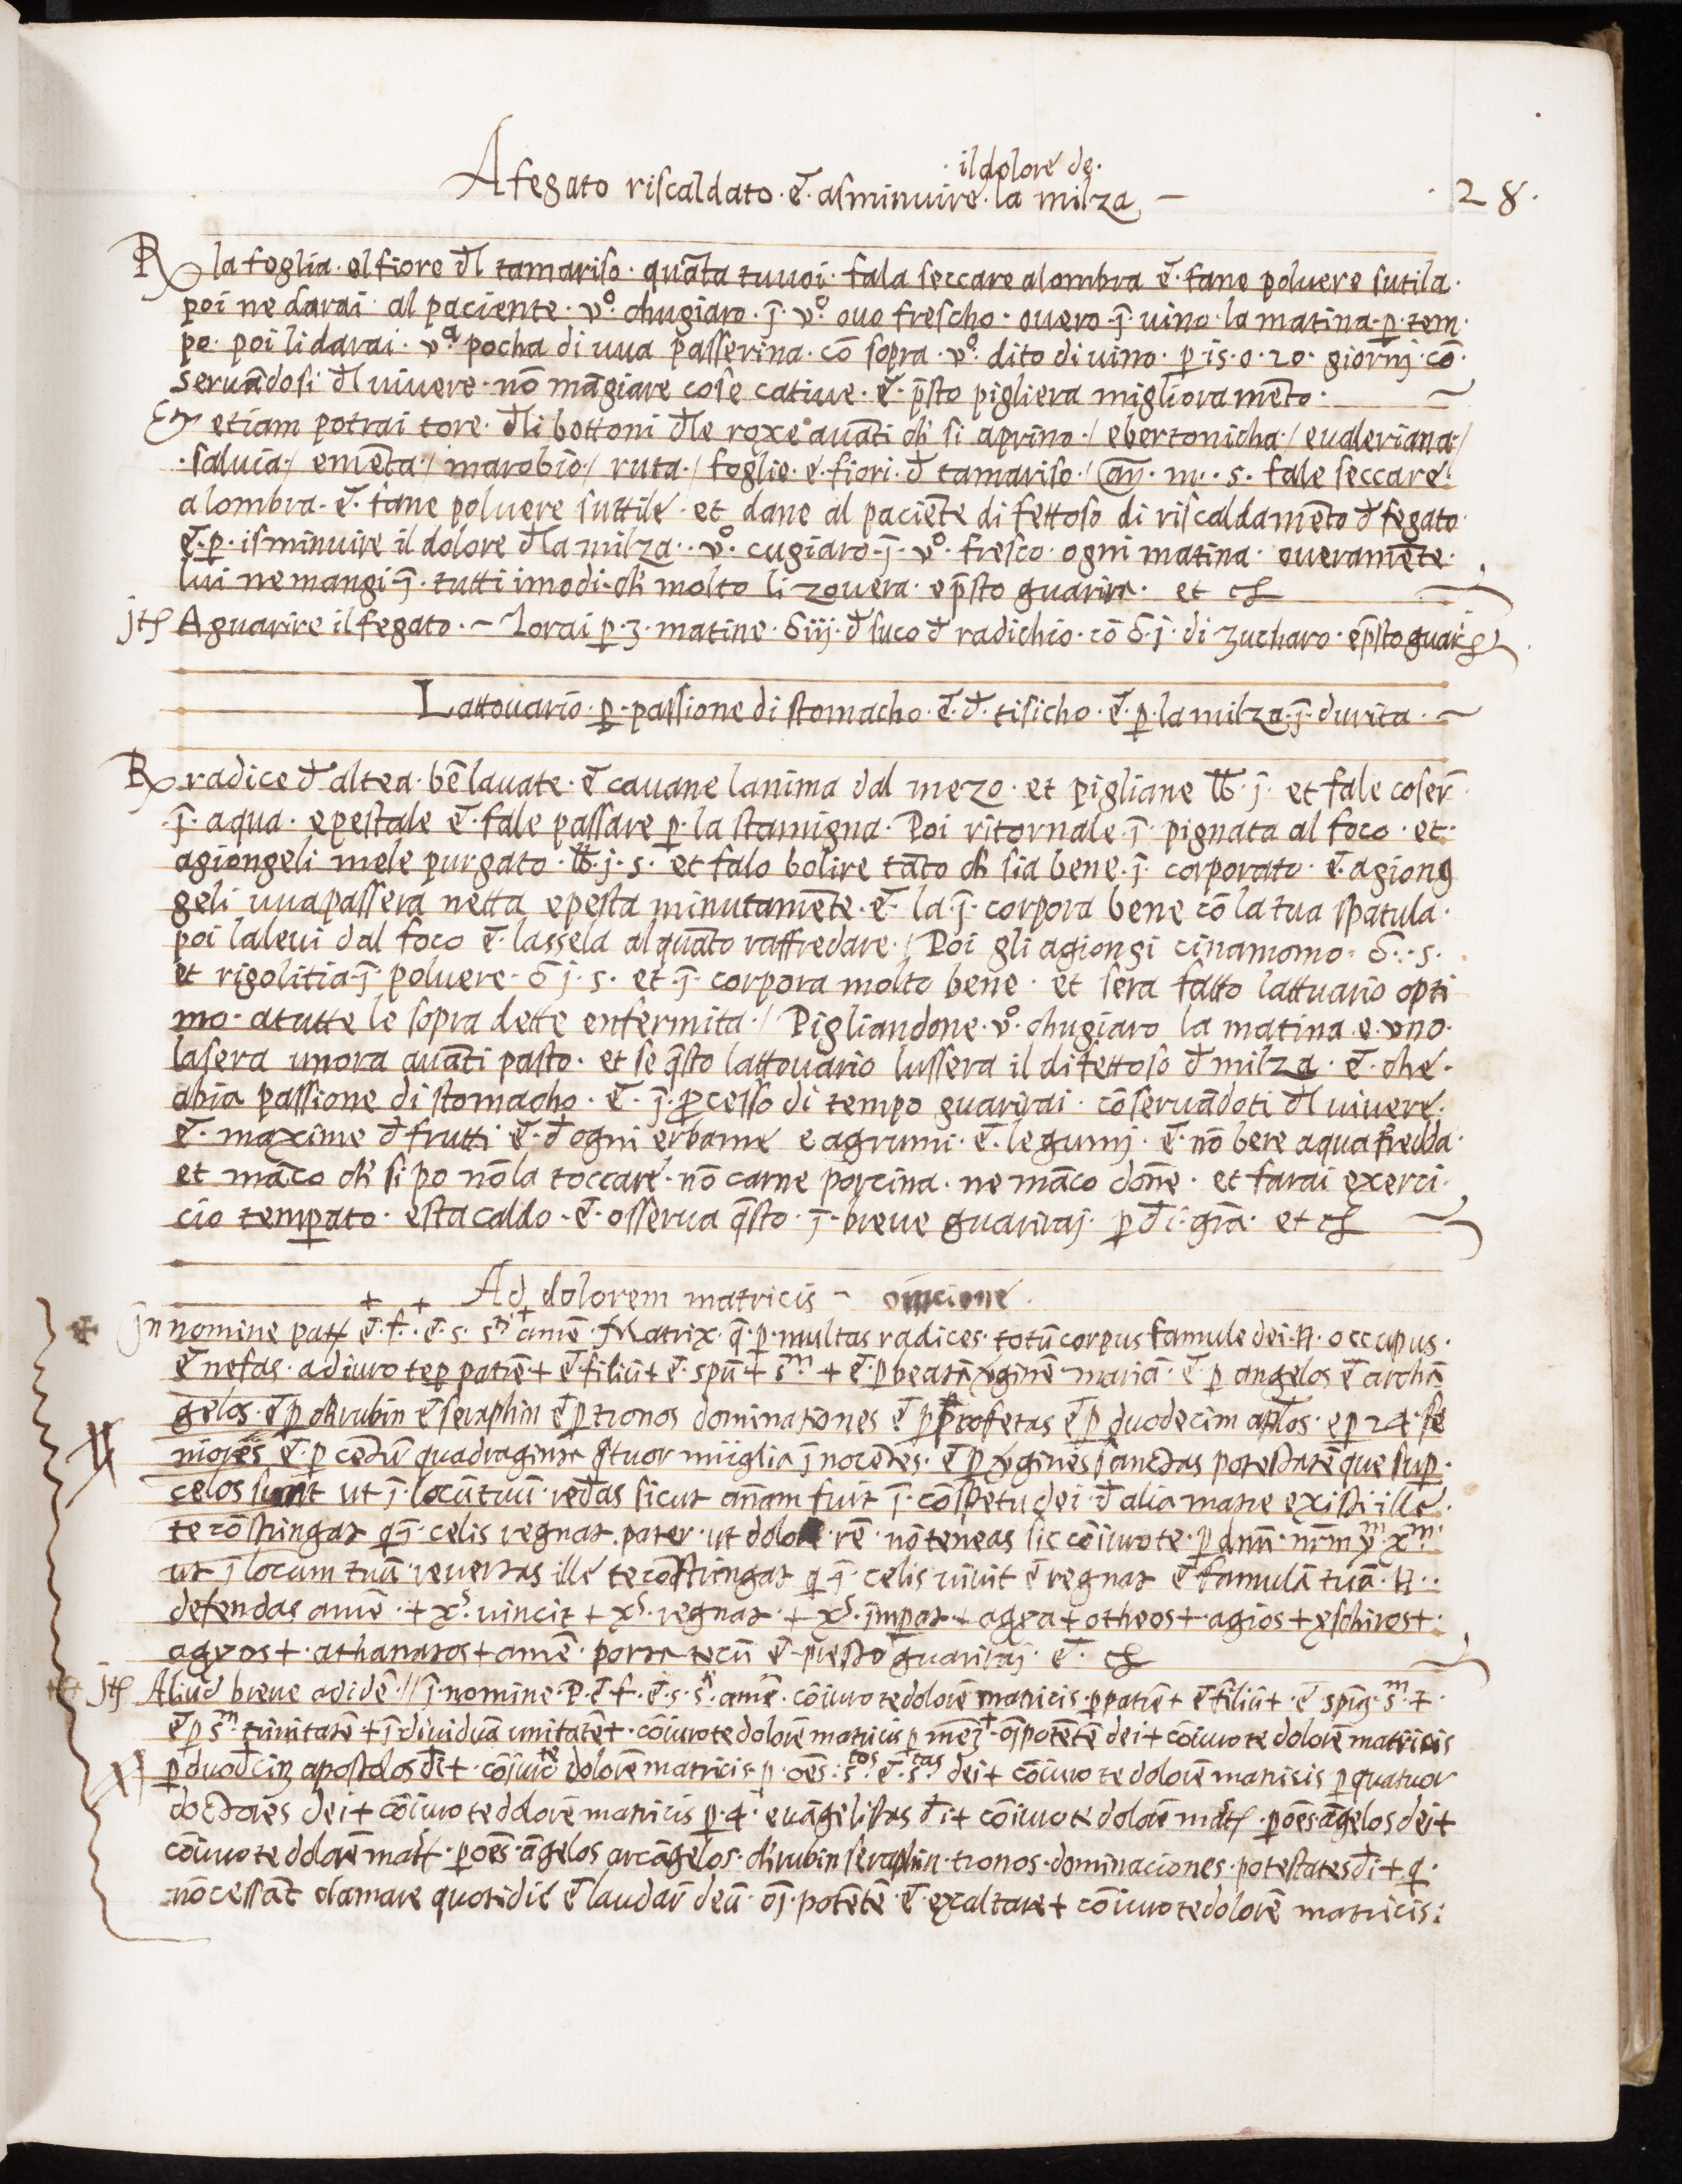 ·il dolore de·
A fegato riscaldato · ē · asminuire · la milza —
· 28 ·
℞ la foglia · el fiore đl tamariso · quāta tu uoi · fala seccare alombra ē · fane poluere sutila ·
poi ne darai · al paciente · vº · chugiaro · j̄ · vº · ouo frescho · ouero · j̄ · uino · la matina · ꝑ · tem ·
po · poi li darai · vª · pocha di uua passerina · cō sopra · vº · dito di uino · ꝑ 15 · o · 20 · giornj · cō ·
seruādosi đl uiuere · nō māgiare cose catiue · ē · p̄sto pigliera miglioramēto ·
Et etiam potrai tore · đli bottoni đle roxe auāti ch' si aprino · / ebertonicha · / eualeriana · /
· saluia · / emēta · / marobio · / ruta · / foglie · e · fiori · đ tamariso · / añ · m · · s · fale seccare ·
a lombra · ē · fane poluere suttile · et dane al paciēte di fettoso di riscaldamēto đ fegato ·
ē · ꝑ · isminuire il dolore đla milza · · vº · cugiaro · j̄ · vº · fresco · ogni matina · oueramēte ·
lui ne mangi · j̄ · tutti i modi · ch' molto li zouera · ep̄sto guarira · et cȝ
jtȝ A guarire il fegato · — Torai ꝑ · 3 · matine · ō iij · đ suco đ radichio · cō ō · j · di zucharo · ep̄sto guarȝ
Lattouario · ꝑ · passione di stomacho · ē · đ · tisicho · ē · ꝑ · la milza · j̄ · durita · —
℞ radice đ altea · bē lauate · ē cauane lanima dal mezo · et pigliane ℔ · j · et fale coser̄ ·
· j̄ · aqua · epestale ē · fale passare ꝑ · la stamigna · Poi ritornale · j̄ · pignata al foco · et ·
agiongeli mele purgato · ℔ · j · s · et falo bolire tāto ch' sia bene · j̄ · corporato · ē · agiong
geli uuapassera netta epesta minutamēte · ē · la · j̄ · corpora bene cō la tua spatula ·
poi laleui dal foco ē · lassela alquāto raffredare · / Poi gli agiongi cinamomo · ō · · s ·
et rigolitia · j̄ · poluere · ō j · s · et · j̄ · corpora molto bene · et sera fatto lattuario opti
mo · atutte le sopra dette enfermita · / Pigliandone · vº · chugiaro la matina · e · vno ·
lasera unora auāti pasto · et se q̄sto lattouario lussera il difettoso đ milza · ē · che ·
abia passione di stomacho · ē · j̄ · ꝑcesso di tempo guarirai · cōseruādoti đl uiuere ·
ē · maxime đ frutti ē · đ ogni erbame e agrumi · ē · legumj · ē · nō bere aqua fredda ·
et māco ch' si po nō la toccare · nō carne porcina · ne māco dōne · et farai exerci ·
cio temꝑato · esta caldo · ē · osserua q̄sto · j̄ · breue guariraj · ꝑ đi · gr̄a · et cȝ
Ad dolorem matricis — oracione ·
Jn nomine patȝ ē · f · · ē · s · sⁱ amē · Matrix · q̄ · ꝑ · multas radices · totū corpus famule dei · N · occupus ·
ē nefas · adiuro te ꝑ patrē + ē · filiū + ē · spū + sᵐ · + ē · ꝑ beatā v̄ginē mariā · ē · ꝑ angelos ē archā
gelos · ē ꝑ cherubin ē seraphin ē ꝑ tronos dominationes ē ꝑ profetas ē ꝑ duodecim ap̄los · e ꝑ 24 · se
niores ē · ꝑ cētū quadraginta q̄tuor miiglia j̄nocētes · ē ꝑ v̄gines sanctas potestatē que suꝑ ·
celos sunt ut j̄ · locū tuū · redas sicut an̄am fuit j̄ · cōspetu dei · đ alia matre existi ille ·
te cōstringat q̄ j̄ · celis regnat · pater · ut dolo rē · nō teneas sic cōiuro te · ꝑ dn̄m · nr̄m yᵐ · xᵐ ·
ut j̄ locum tuū reuertas ille te cōstringat q̄ j̄ · celis uiuit ē regnat ē famulā tuā · N · ·
defendas amē · + xˢ · uincit + xˢ · regnat · + xˢ · jmꝑat + agya + otheos + agios + yschiros + ·
agyos + · athanatos + amē · porta tecū ē presto guariraj · ē · cȝ
jtȝ Aliud breue ad idē · // j̄ · nomine · P · ē · f · ē · s · sⁱ · amē · cōiuro te dolorē matricis · ꝑ patrē + ē filiū + ē · spūȝ · sᵐ · + ·
ē ꝑ sᵐ · trinitatē + j̄diuiduā unitatē + · cōiuro te dolorē matricis ꝑ · oj̄potētē dei + cōiuro te dolorē matricis
ꝑ duođciȝ apostolos đi + · cōjuro te dolorē matricis · ꝑ · oēs : sᵗᵒˢ · ē · sᵗᵃˢ · dei + cōiuro te dolorē matrisis · ꝑ quatuor
doctores dei + cōiuro te dolorē matricis ꝑ · 4 · euāgelistas đi + cōiuro te dolorē matȝ · ꝑ oēs āgelos dei +
cōiuro te dolorē matȝ · ꝑ oēs · āgelos arcāgelos · cherubin seraphin · tronos · dominaciones · potestates đi + q̄ ·
nō cessāt clamare quotidie ē laudar̄ deū · oj̄ · potētē · ē · exaltare + cōiuro te dolorē matricis :